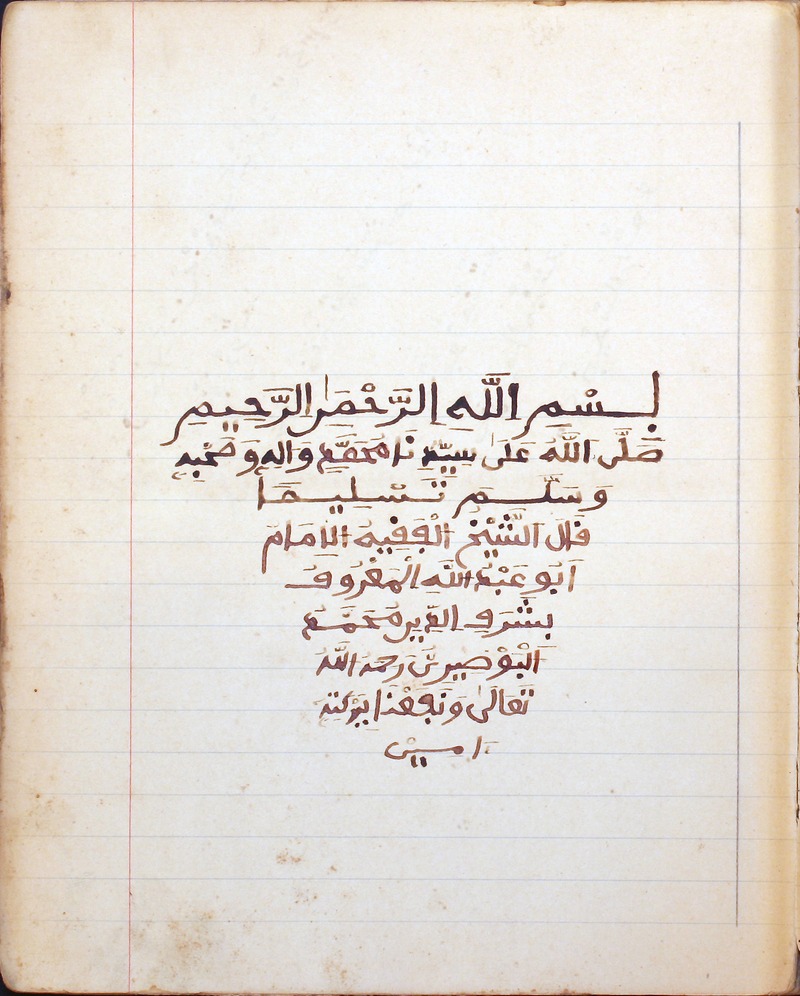 بِسْمِ اللَّهِ الرَّحْمَٰنِ الرَّحِيمِ
صَلَّى اللَّهُ عَلَى سَيِّدِنَا مُحَمَّدٍ وَالِهِ وَصَحْبِهِ
وَسَلَّمَ تَسْلِيمًا
قَالَ الشَّيْخُ الْفَقِيهُ الامَامُ
أَبُو عَبْدِ اللَّهِ الْمَعْرُوفُ
بِشَرَفِ الدِّينِ مُحَمَّدٍ
الْبُوْصِيرِيُّ رَحِمَهُ اللَّهُ
تَعَالَى وَنَفَعْنَا بِبَرَكَتِهِ
امِينْ